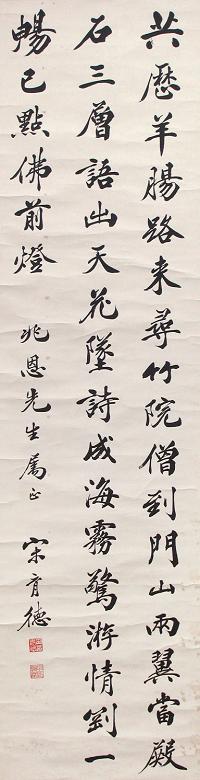 共歷羊腸路来尋竹院僧到門山兩翼當殿
石三層語出天花墜詩成海霧驚游情剛一
暢已點佛前燈
兆恩先生属正
宋育德